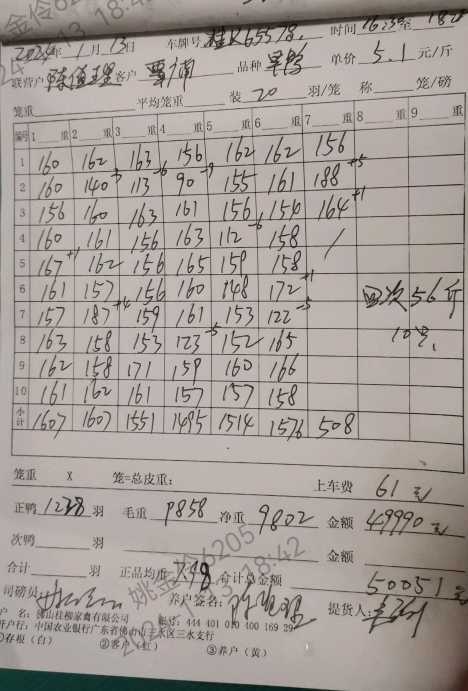 2024年1月13日 车牌号 桂K65578. 时间 16:30至18:20
联营户 客户 覃 品种 旱鸭 单价 5.1 元/斤
笼重 平均笼重 装 20 羽/笼 称 笼/磅
编号 1 重 2 重 3 重 4 重 5 重 6 重 7 重 8 重 9 重
1 160 162 163 156 162 162 156
2 160 140-3 113-6 90-9 155 161 188+5
3 156 160 163 161 156 154 164+1
4 160 161 156 163 112-6 158 /
5 167+1 162 156 165 159 158
6 161 157 156 160 148 172+1 回次56斤
7 157 187+4 159 161 153 122-5 10号,
8 163 158 153 123-5 152 165
9 162 158 171 159 160 166
10 161 162 161 157 157 158
小计 1607 1607 1551 1495 1514 1576 508
笼重 X 笼=总皮重: 上车费 61 元
正鸭 1238 羽 毛重 9858 净重 9802 金额 49990 元
次鸭 羽 金额
合计 羽 正品均重 合计总金额 50051 元
司磅员 养户签名: 提货人:
户 名: 佛山桂柳家禽有限公司 帐号: 444 401 010 400 169 29
开户行: 中国农业银行广东省佛山市三水区三水支行
①存根(白) ②客户(红) ③养户(黄)
姚金伶6205
2024-1-13 18:42